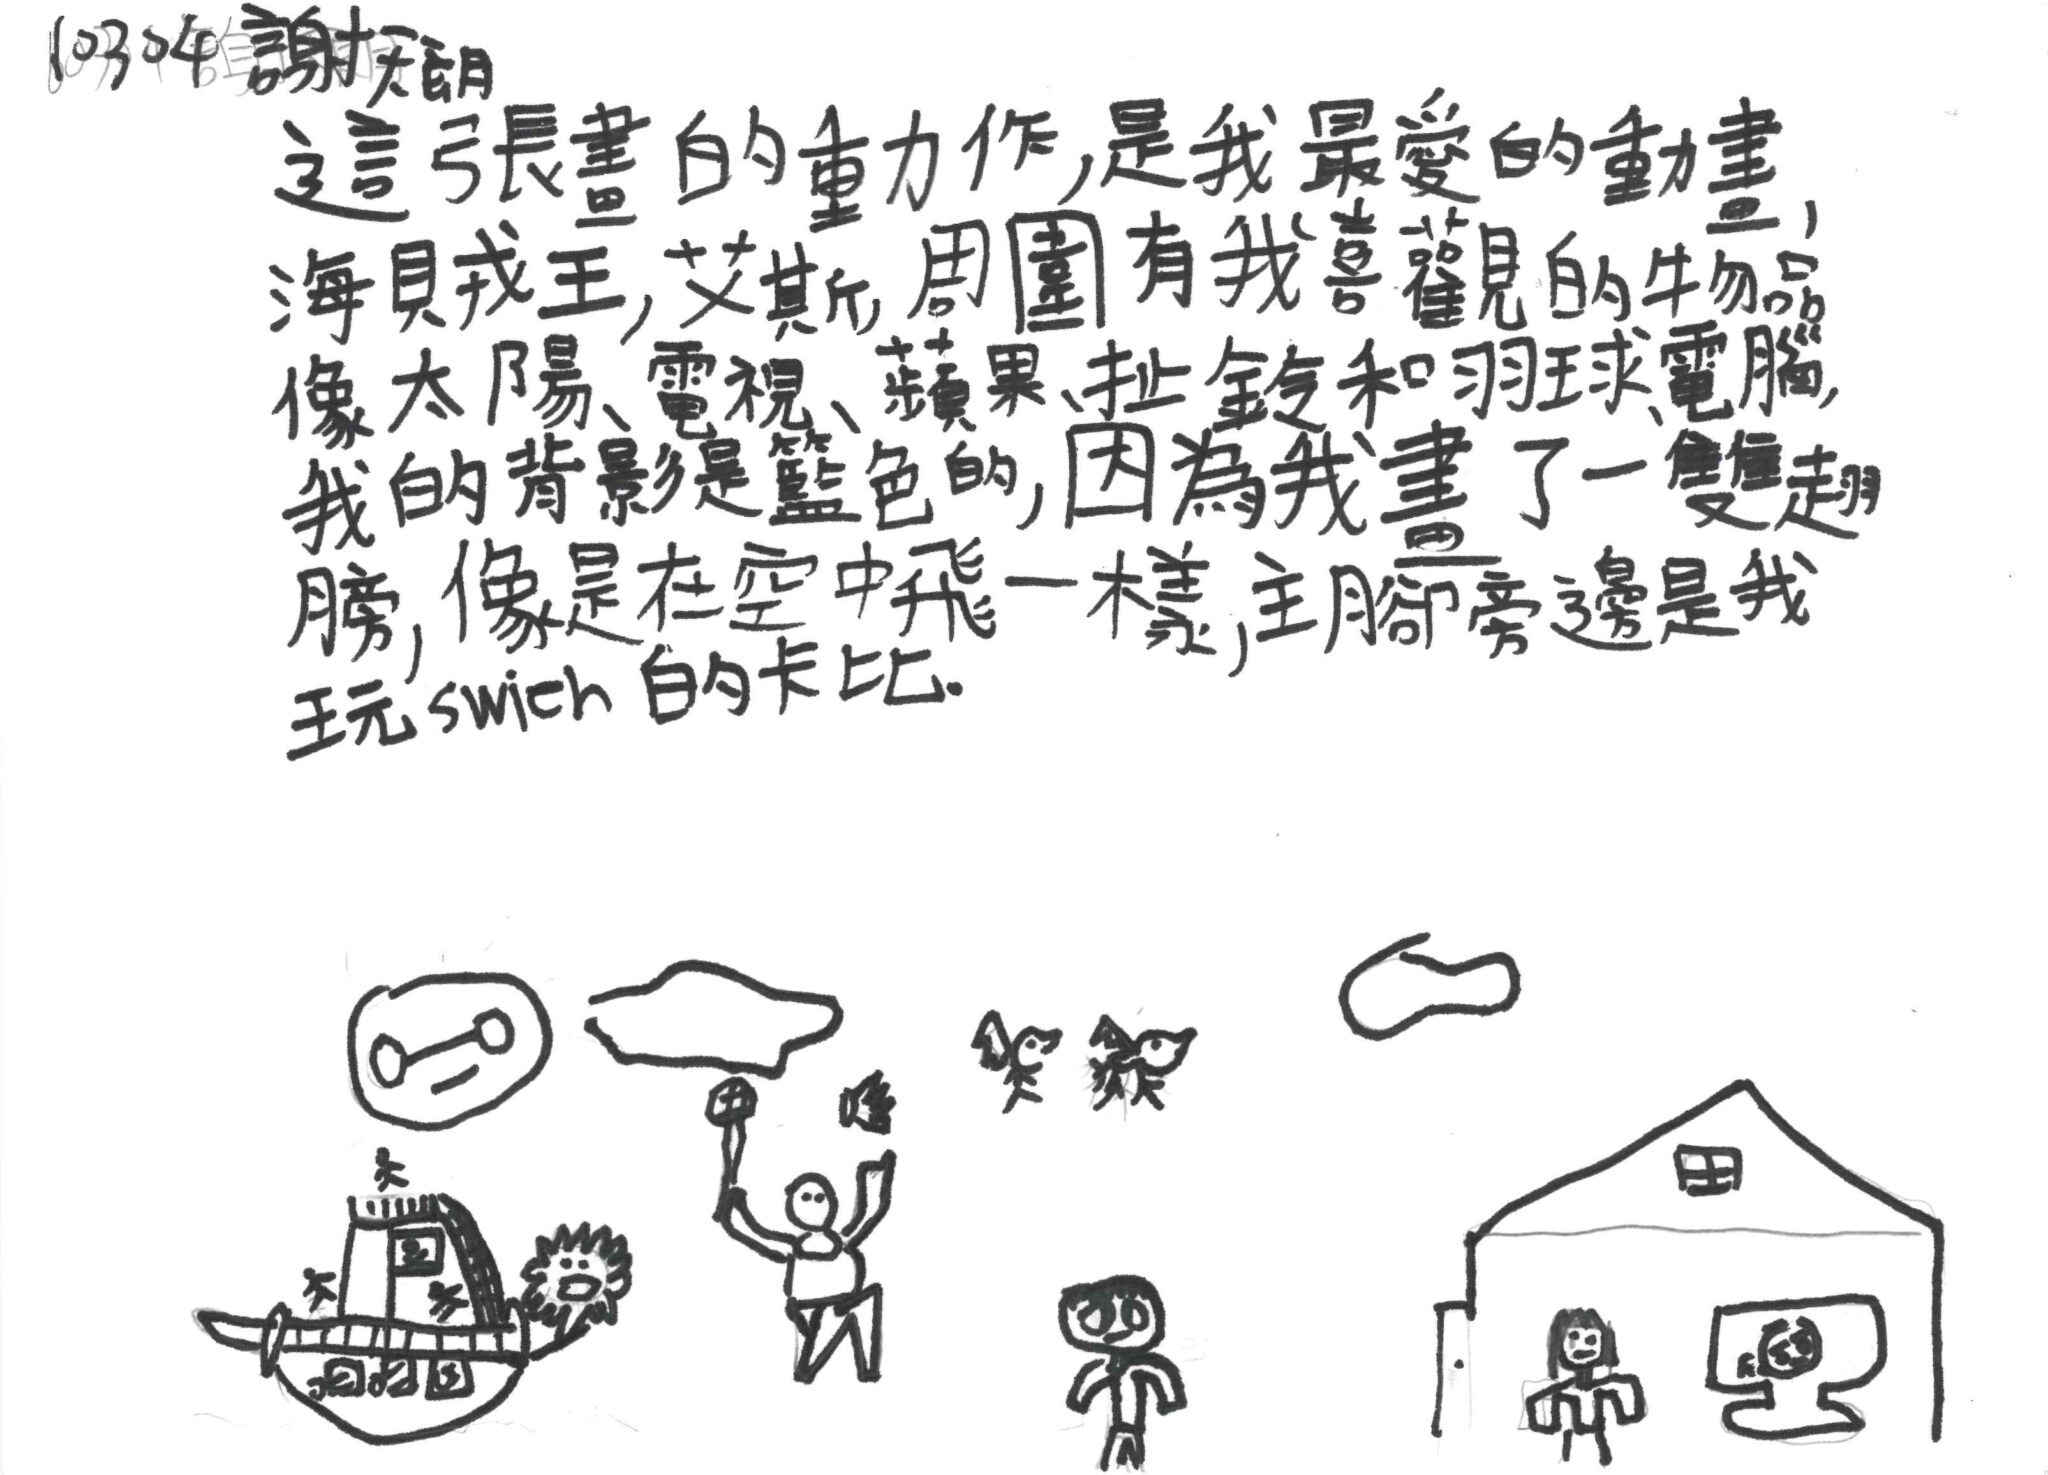 10304 謝抸朗
這張畫的動作,是我最愛的動畫,
海貝戎王,艾斯,周圍有我喜觀的物品
像太陽、電視、蘋果、扯鈴和羽球、電腦,
我的背影是籃色的,因為我畫了一雙翅
膀,像是在空中飛一樣,主腳旁邊是我
玩swich的卡比.